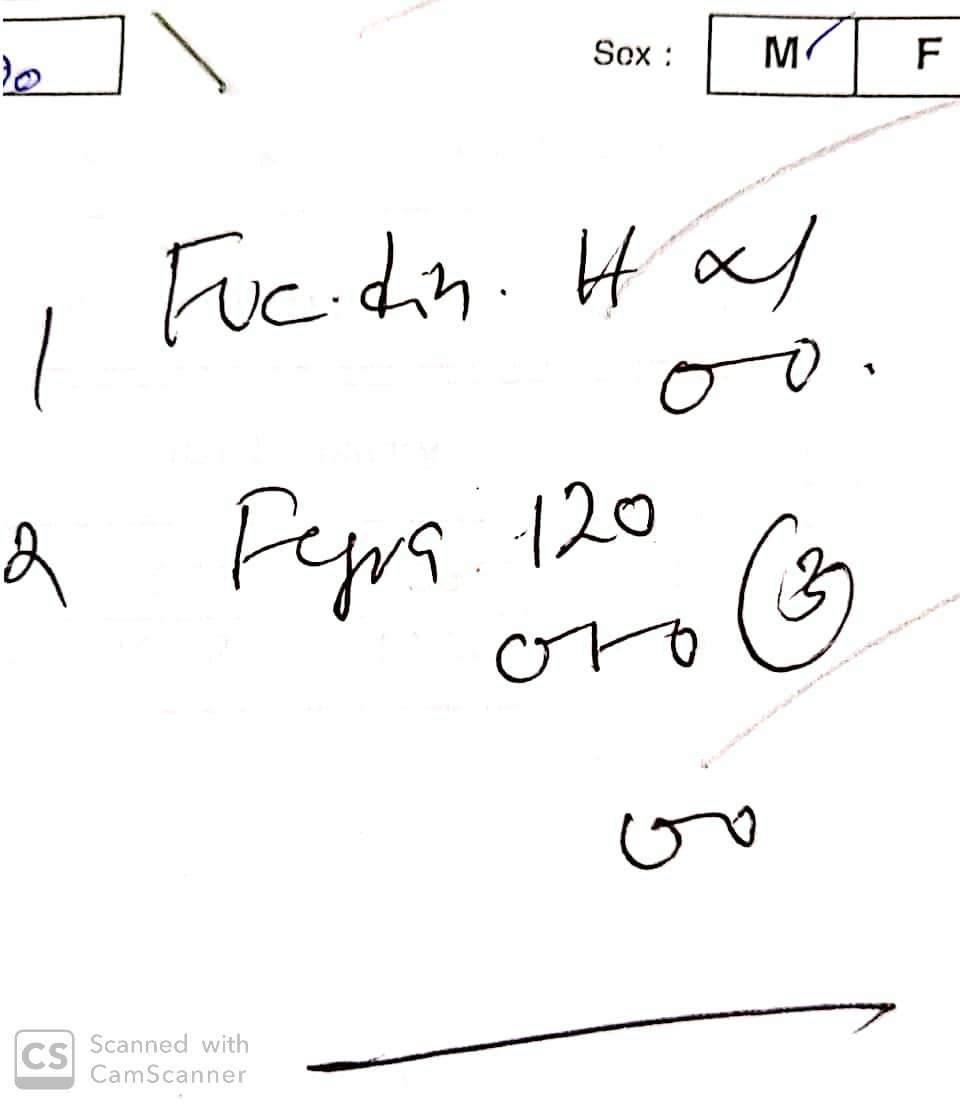 Sex : M F
1 Fucidin. H x1
o-o.
2 Fexra 120
o+o 3
o-o
CS Scanned with
CamScanner